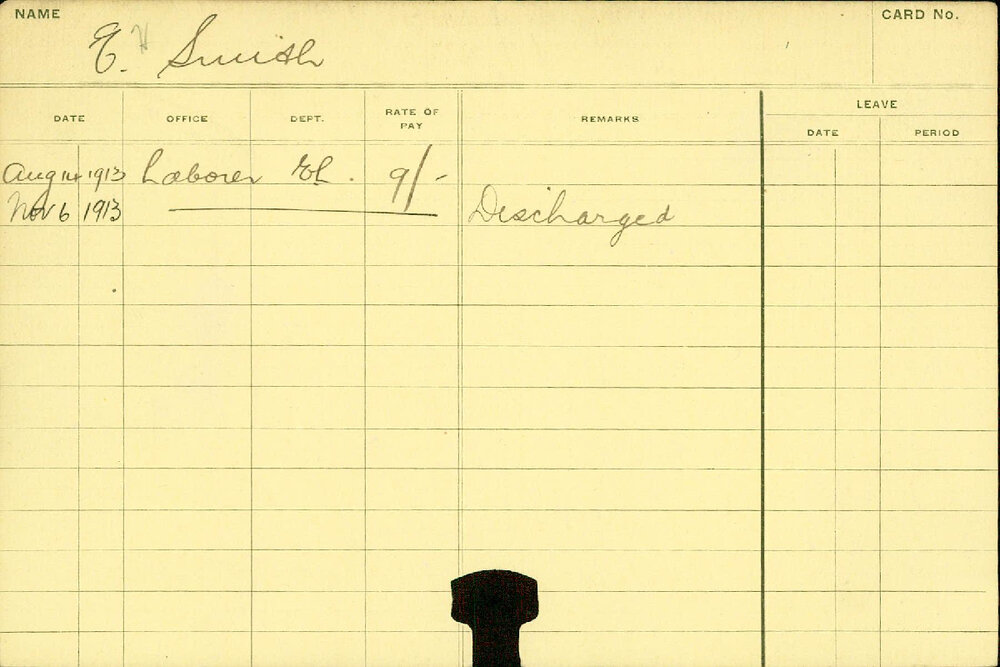 NAME
CARD No.
E. H Smith
LEAVE
DATE OFFICE DEPT. RATE OF PAY REMARKS DATE PERIOD
Aug 14 1913 Laborer 9/-
Nov 6 1913 Discharged